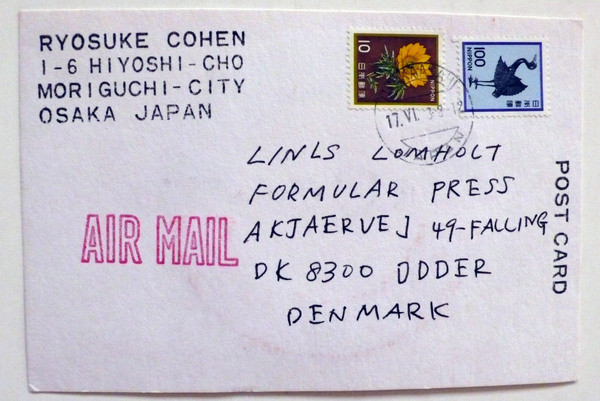 RYOSUKE COHEN
1-6 HIYOSHI-CHO
MORIGUCHI-CITY
OSAKA JAPAN
10
日本郵便
NIPPON
100
NIPPON
日本郵便
17.VI.
LINLS LOMHOLT
FORMULAR PRESS
AKJAERVEJ 49-FALLING
DK 8300 ODDER
DENMARK
AIR MAIL
POST CARD